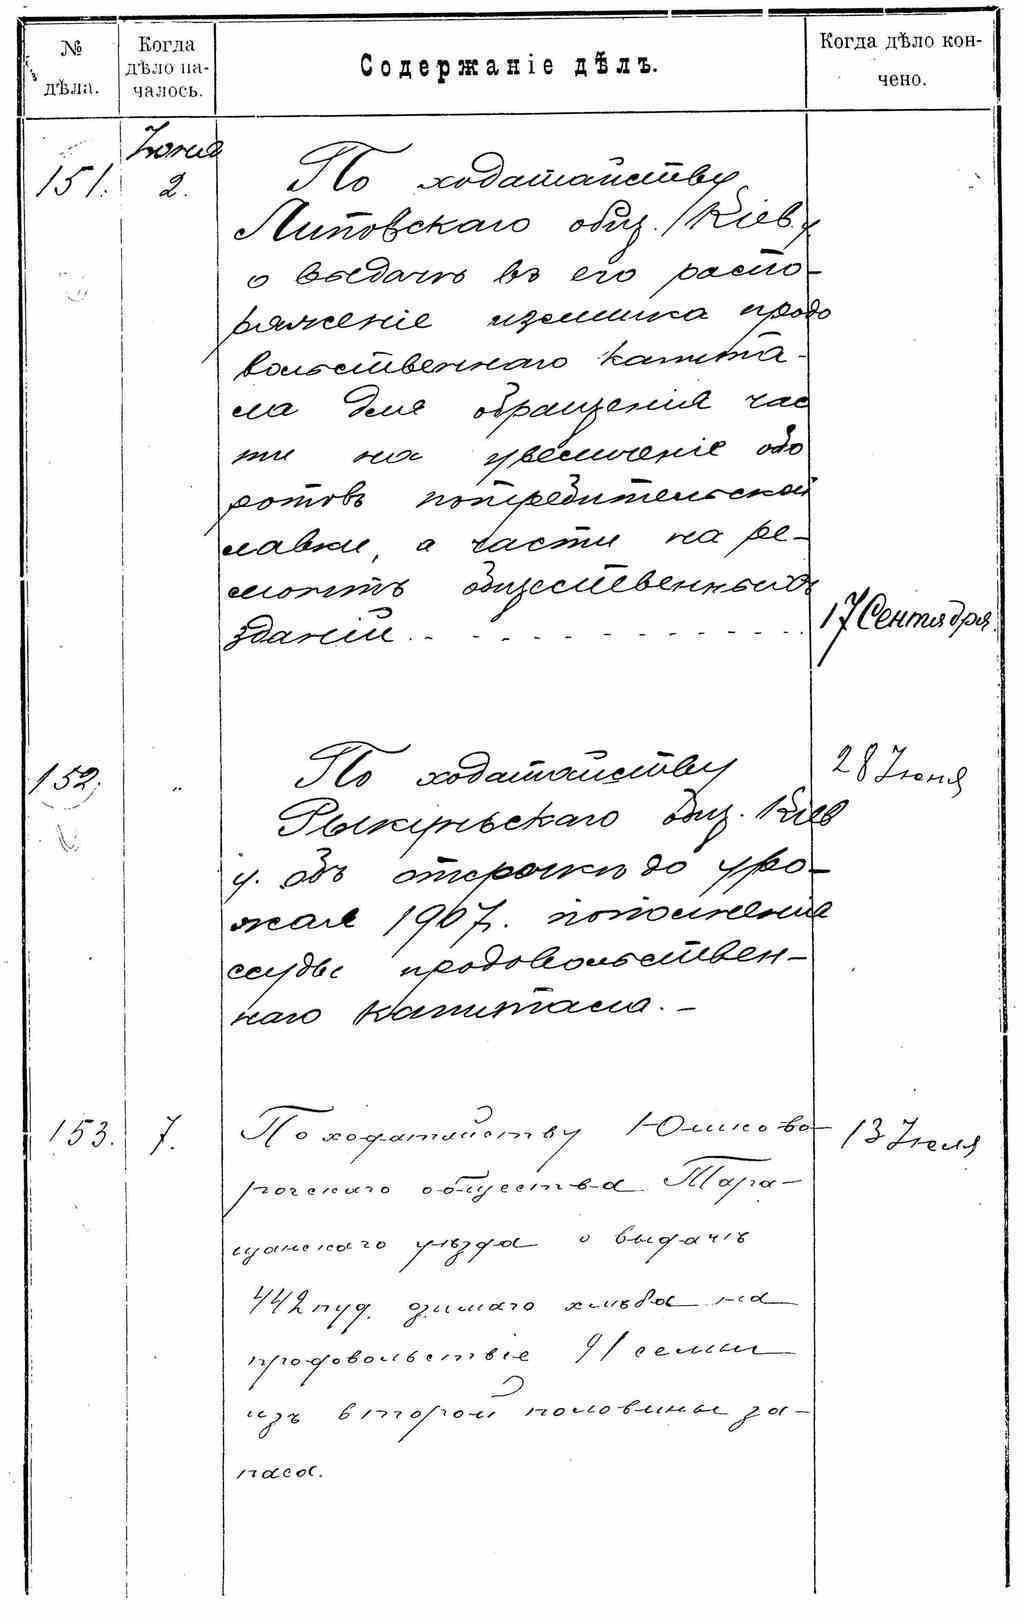 № дѣла.
Когда дѣло на-
чалось.
Содержаніе дѣлъ.
Когда дѣло кон-
чено.
Іюня
151. 2. По ходатайству
Липовскаго общ. Кіев. у.
о выдачѣ въ его распо-
ряженіе излишка продо
вольственнаго капита-
ла для обращенія час
ти на увеличеніе обо
ротовъ потребительской
лавки, а части на ре-
монтъ общественныхъ
зданій. 17 Сентября.
152. „ По ходатайству 28 Іюня
Рыкуньскаго общ. Кіев
у. объ отсрочкѣ до уро-
жая 1907 г. пополненія
ссуды продовольствен-
наго капитала. -
153. 7. По ходатайству Юшково- 13 Іюля
рогскаго общества Тара-
щанскаго уѣзда о выдачѣ
442 пуд. озимаго хлѣба на
продовольствіе 91 семьи
изъ второй половины за-
паса.